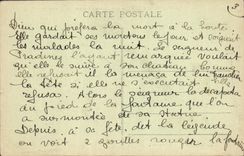 3
CARTE POSTALE
Dieu qui préféra la mort à la honte.
Elle gardait ses moutons le jour et soignait
les malades la nuit. Le seigneur de
Pradines l'ayant remarquée voulait
qu'elle le suive à son château comme
elle refusait il la menaça de lui trancher
la tête si elle ne s'exécutait
refusa. Alors le seigneur la décapita
du pied de la fontaine que l'on
a surmontée de sa statue.
Depuis à sa fête, dit la légende
on voit 2 gouttes rouges